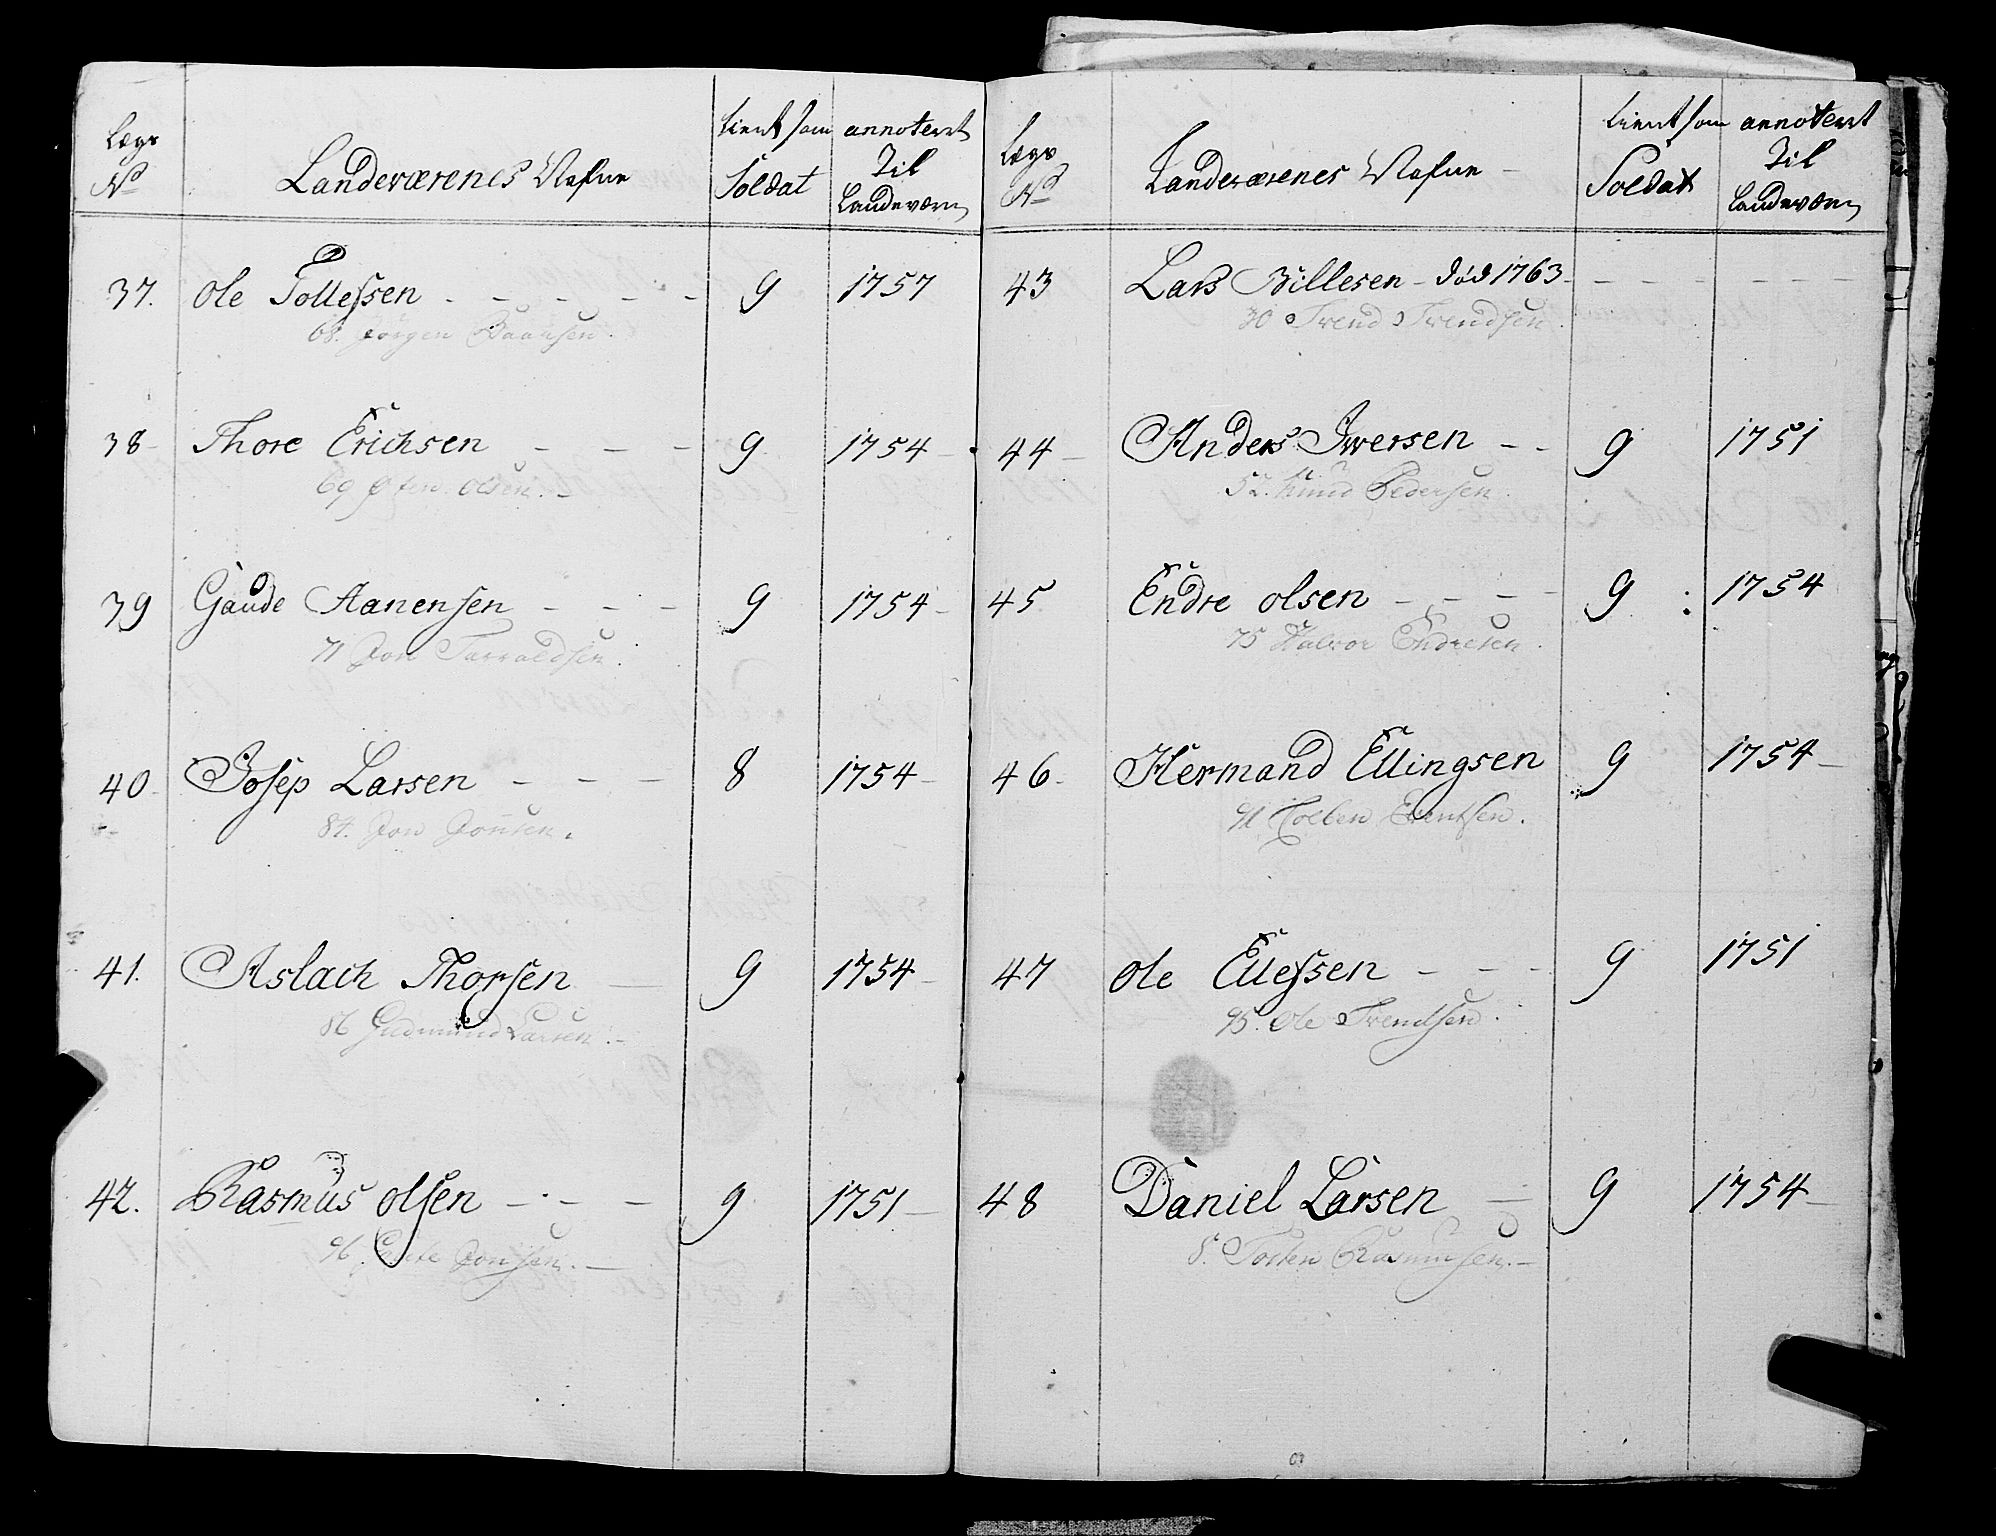 Lægs No | Landeværenes Nafne | tient som Soldat | annoteret Til Landeværn
37. Ole Tollefsen - - - - - 9 1757
68. Jörgen
38 Thore Erichsen - - - 9 1754
69 Olsen.
39 Gaude Aanensen - - - 9 1754
71 Jon Tarraldsen.
40 Josep Larsen - - - 8 1754
84. Jon Jonsen.
41. Aslach Thorsen 9 1754
86 Gudmund Larsen.
42. Rasmus Olsen - - - 9 1751
96. Jonsen.
Lægs No | Landeværenes Nafne | tient som Soldat | annoteret Til Landeværn
43 Lars Billesen - død 1763 - - - - - - -
30 Trend Trendsen
44 Anders Iwersen - - 9 1751
52. Knud Pedersen.
45 Endre Olsen - - - - 9 1754
75 Halvor Endresen.
46 Hermand Ellingsen 9 1754
91 Tolben Evensen.
47 Ole Ellefsen - - - 9 1751
95. Ole Trendsen.
48 Daniel Larsen 9 1754
8. Rasmusen.